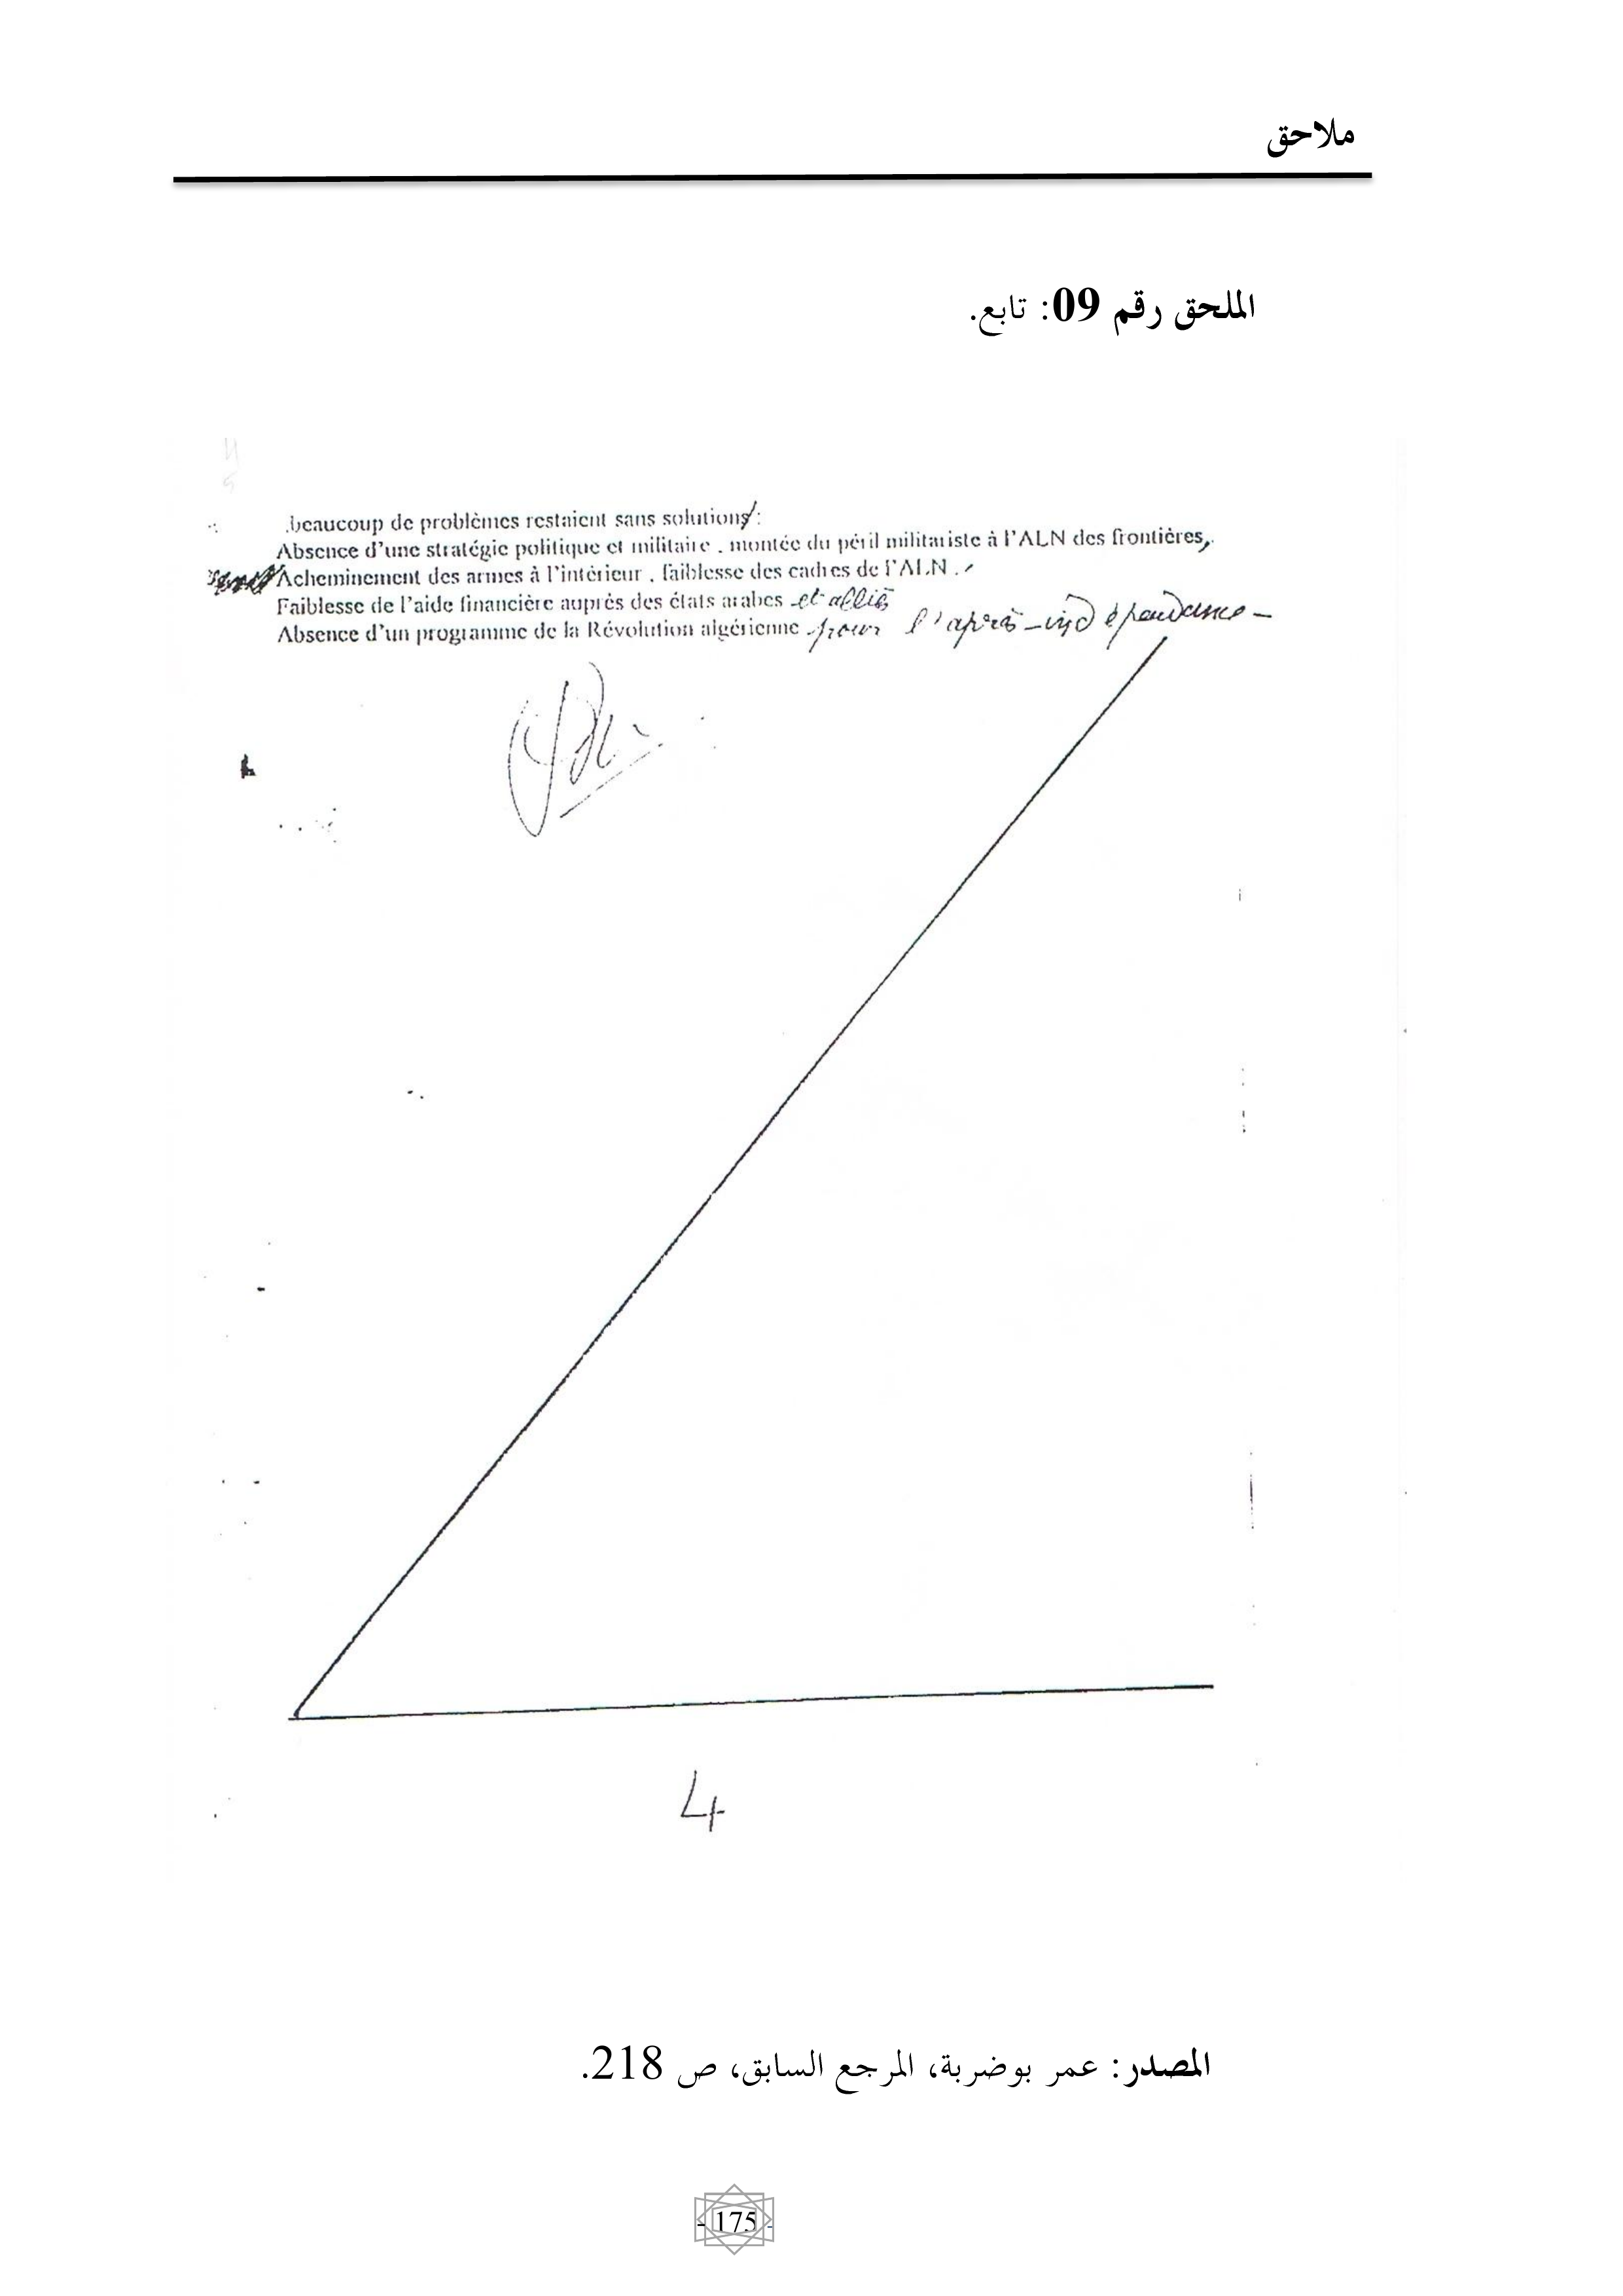 ملاحق
الملحق رقم 09: تابع.
.beaucoup de problèmes restaient sans solutions :
Absence d'une stratégie politique et militaire . montée du péril militariste à l'ALN des frontières,.
Acheminement des armes à l'intérieur , faiblesse des cadres de l'ALN .
Faiblesse de l'aide financière auprès des états arabes et alliés
Absence d'un programme de la Révolution algérienne pour l'après-indépendance -
4
المصدر: عمر بوضربة، المرجع السابق، ص 218.
- 175 -